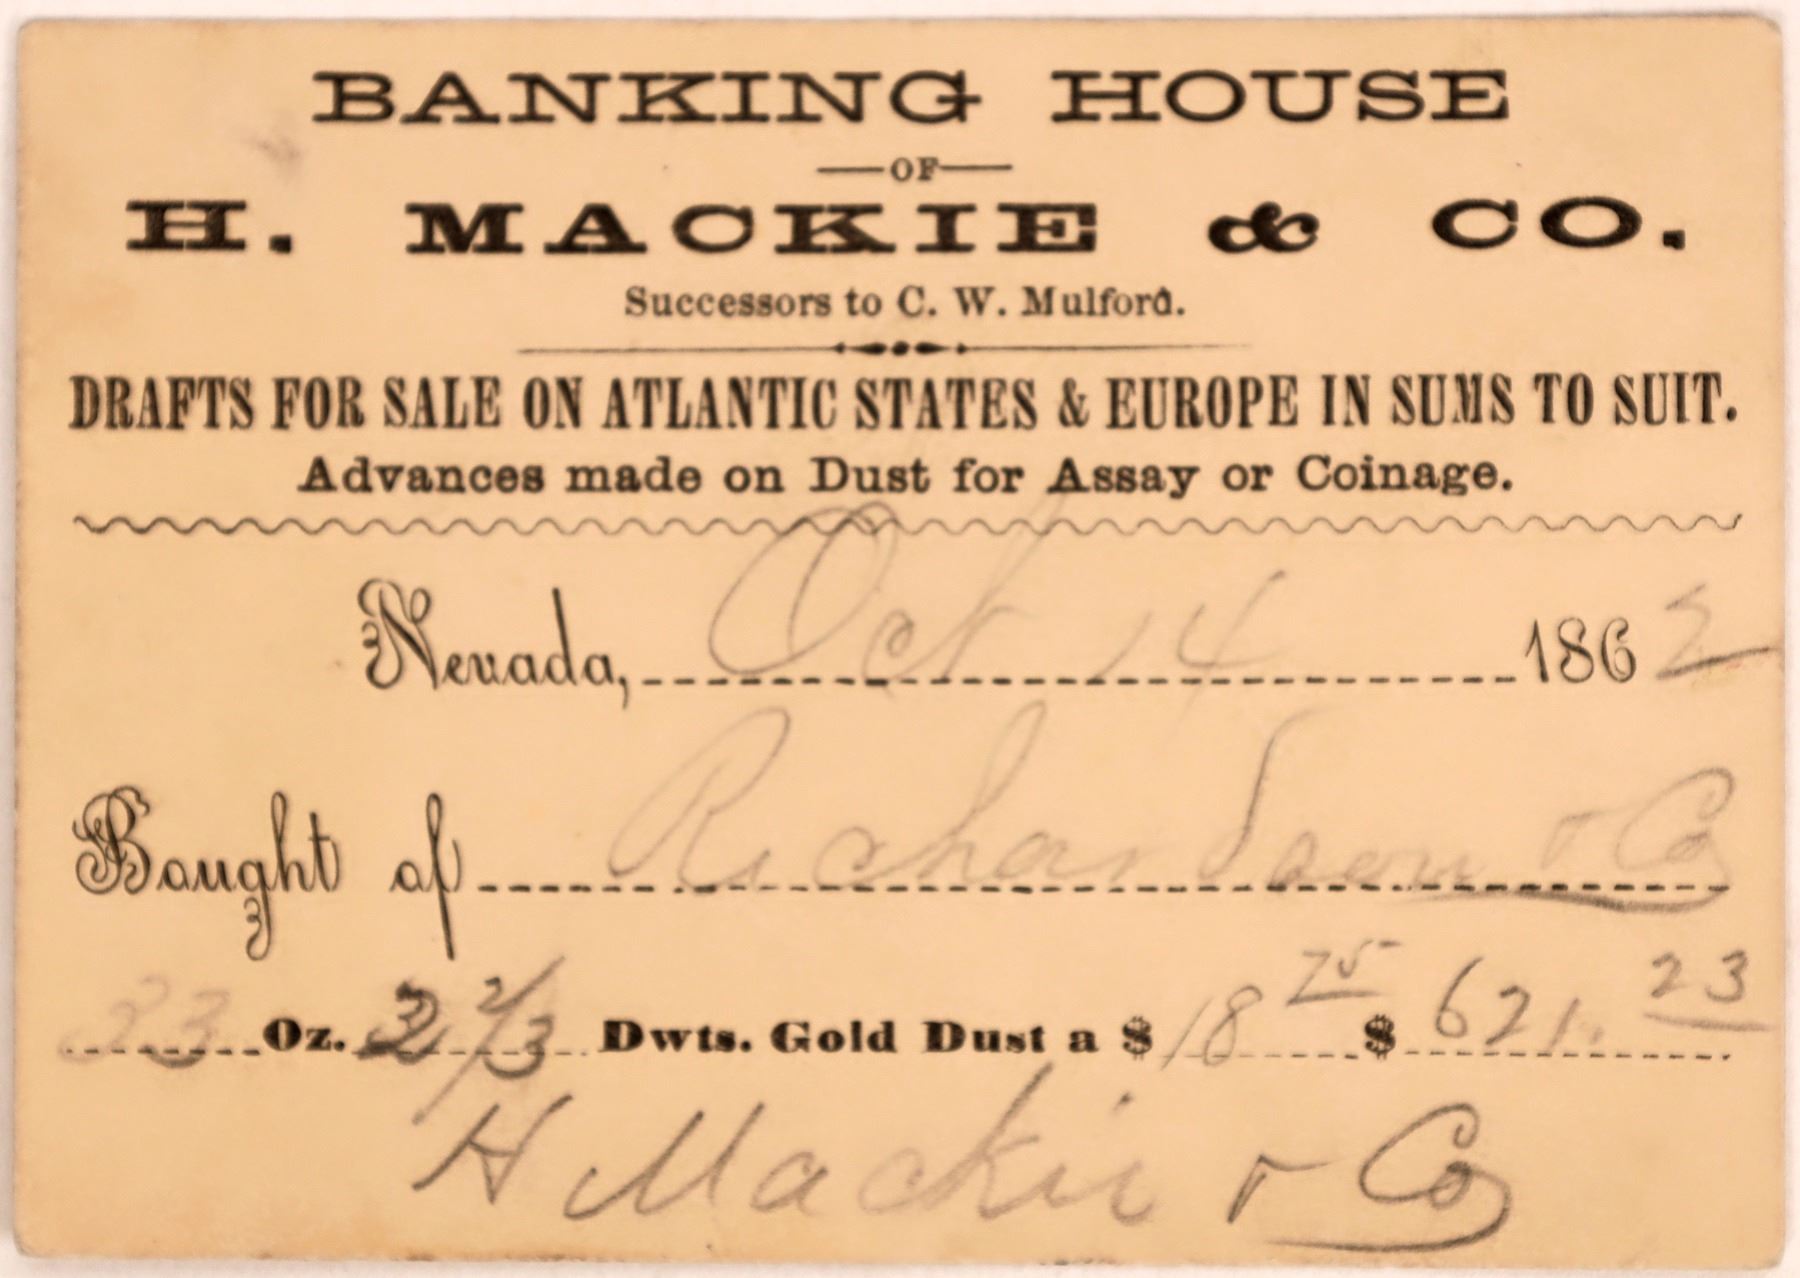 BANKING HOUSE
OF
H. MACKIE & CO.
Successors to C. W. Mulford.
DRAFTS FOR SALE ON ATLANTIC STATES & EUROPE IN SUMS TO SUIT.
Advances made on Dust for Assay or Coinage.
Nevada, Oct 14 1862
Bought of Richardson & Co
33 Oz. 2 2/3 Dwts. Gold Dust a $ 18 75 $ 621. 23
H Mackie & Co